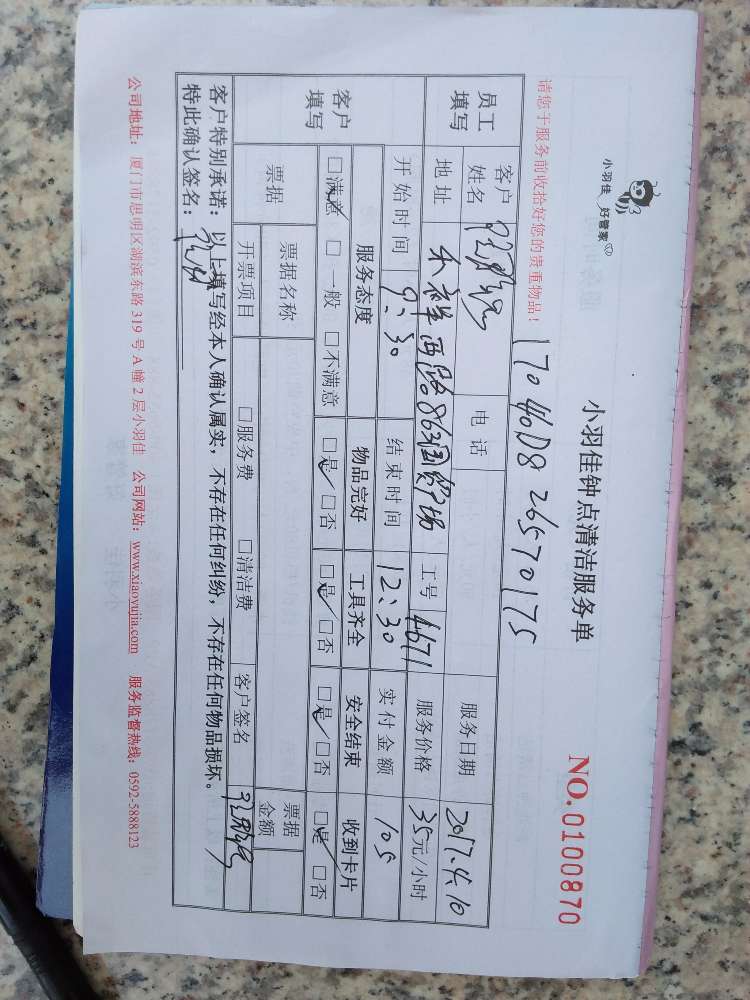 小羽佳 好管家
小羽佳钟点清洁服务单
NO. 0100870
请您于服务前收拾好您的贵重物品！
170410D826570175
员工填写 客户姓名 电话 服务日期 2017.4.10
地址 禾祥西路86 工号 4671 服务价格 35元/小时
开始时间 9:30 结束时间 12:30 实付金额 105
客户填写 服务态度 物品完好 工具齐全 安全结束 收到卡片
☑满意 □一般 □不满意 ☑是/□否 ☑是/□否 ☑是/□否 ☑是/□否
票据 票据名称 票据金额
开票项目 □服务费 □清洁费 客户签名
客户特别承诺：以上填写经本人确认属实，不存在任何纠纷，不存在任何物品损坏。
特此确认签名：
公司地址：厦门市思明区湖滨东路 319 号 A 幢 2 层小羽佳 公司网站：www.xiaoyujia.com 服务监督热线：0592-5888123